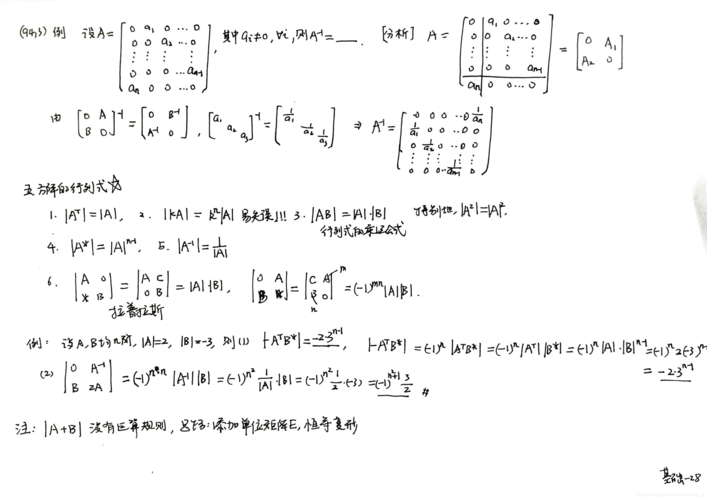 (94,3) 例 设A=[0 a₁ 0 … 0; 0 0 a₂ … 0; ⋮ ⋮ ⋮ ⋮; 0 0 0 … aₙ₋₁; aₙ 0 0 … 0], 其中aᵢ≠0, ∀i, 则A⁻¹=____. [分析] A=[0 a₁ 0 … 0; 0 0 a₂ … 0; ⋮ ⋮ ⋮ ⋮; 0 0 0 aₙ₋₁; aₙ 0 0 … 0]=[0 A₁; A₂ 0]
由 [0 A; B 0]⁻¹=[0 B⁻¹; A⁻¹ 0], [a₁ a₂ a₃]⁻¹=[1/a₁ 1/a₂ 1/a₃] ⇒ A⁻¹=[0 0 0 … 0 1/aₙ; 1/a₁ 0 0 … 0 0; 0 1/a₂ 0 … 0 0; ⋮ ⋮ ⋮ ⋮ ⋮; 0 0 0 … 1/aₙ₋₁ 0]
五 方阵的行列式 ☆
1. |Aᵀ|=|A|, 2. |kA|=kⁿ|A| 易失误!!! 3. |AB|=|A|·|B| 特别地, |A²|=|A|².
行列式的乘法公式
4. |A*|=|A|ⁿ⁻¹, 5. |A⁻¹|=1/|A|
6. |A 0; * B|=|A C; 0 B|=|A|·|B|, |0 A; B *|=|C A; B 0|=(-1)ᵐⁿ|A||B|.
拉普拉斯
例: 设A,B均n阶, |A|=2, |B|=-3, 则(1) |-AᵀB*|=-2·3ⁿ⁻¹, |-AᵀB*|=(-1)ⁿ|AᵀB*|=(-1)ⁿ|Aᵀ||B*|=(-1)ⁿ|A|·|B|ⁿ⁻¹=(-1)ⁿ2(-3)ⁿ⁻¹
=-2·3ⁿ⁻¹
(2) |0 A⁻¹; B 2A|=(-1)ⁿˣⁿ|A⁻¹||B|=(-1)^(n²) 1/|A|·|B|=(-1)^(n²) 1/2·(-3)=(-1)^(n²+1) 3/2 #
注: |A+B| 没有运算规则, 思路: 添加单位矩阵E, 恒等变形
基础-28